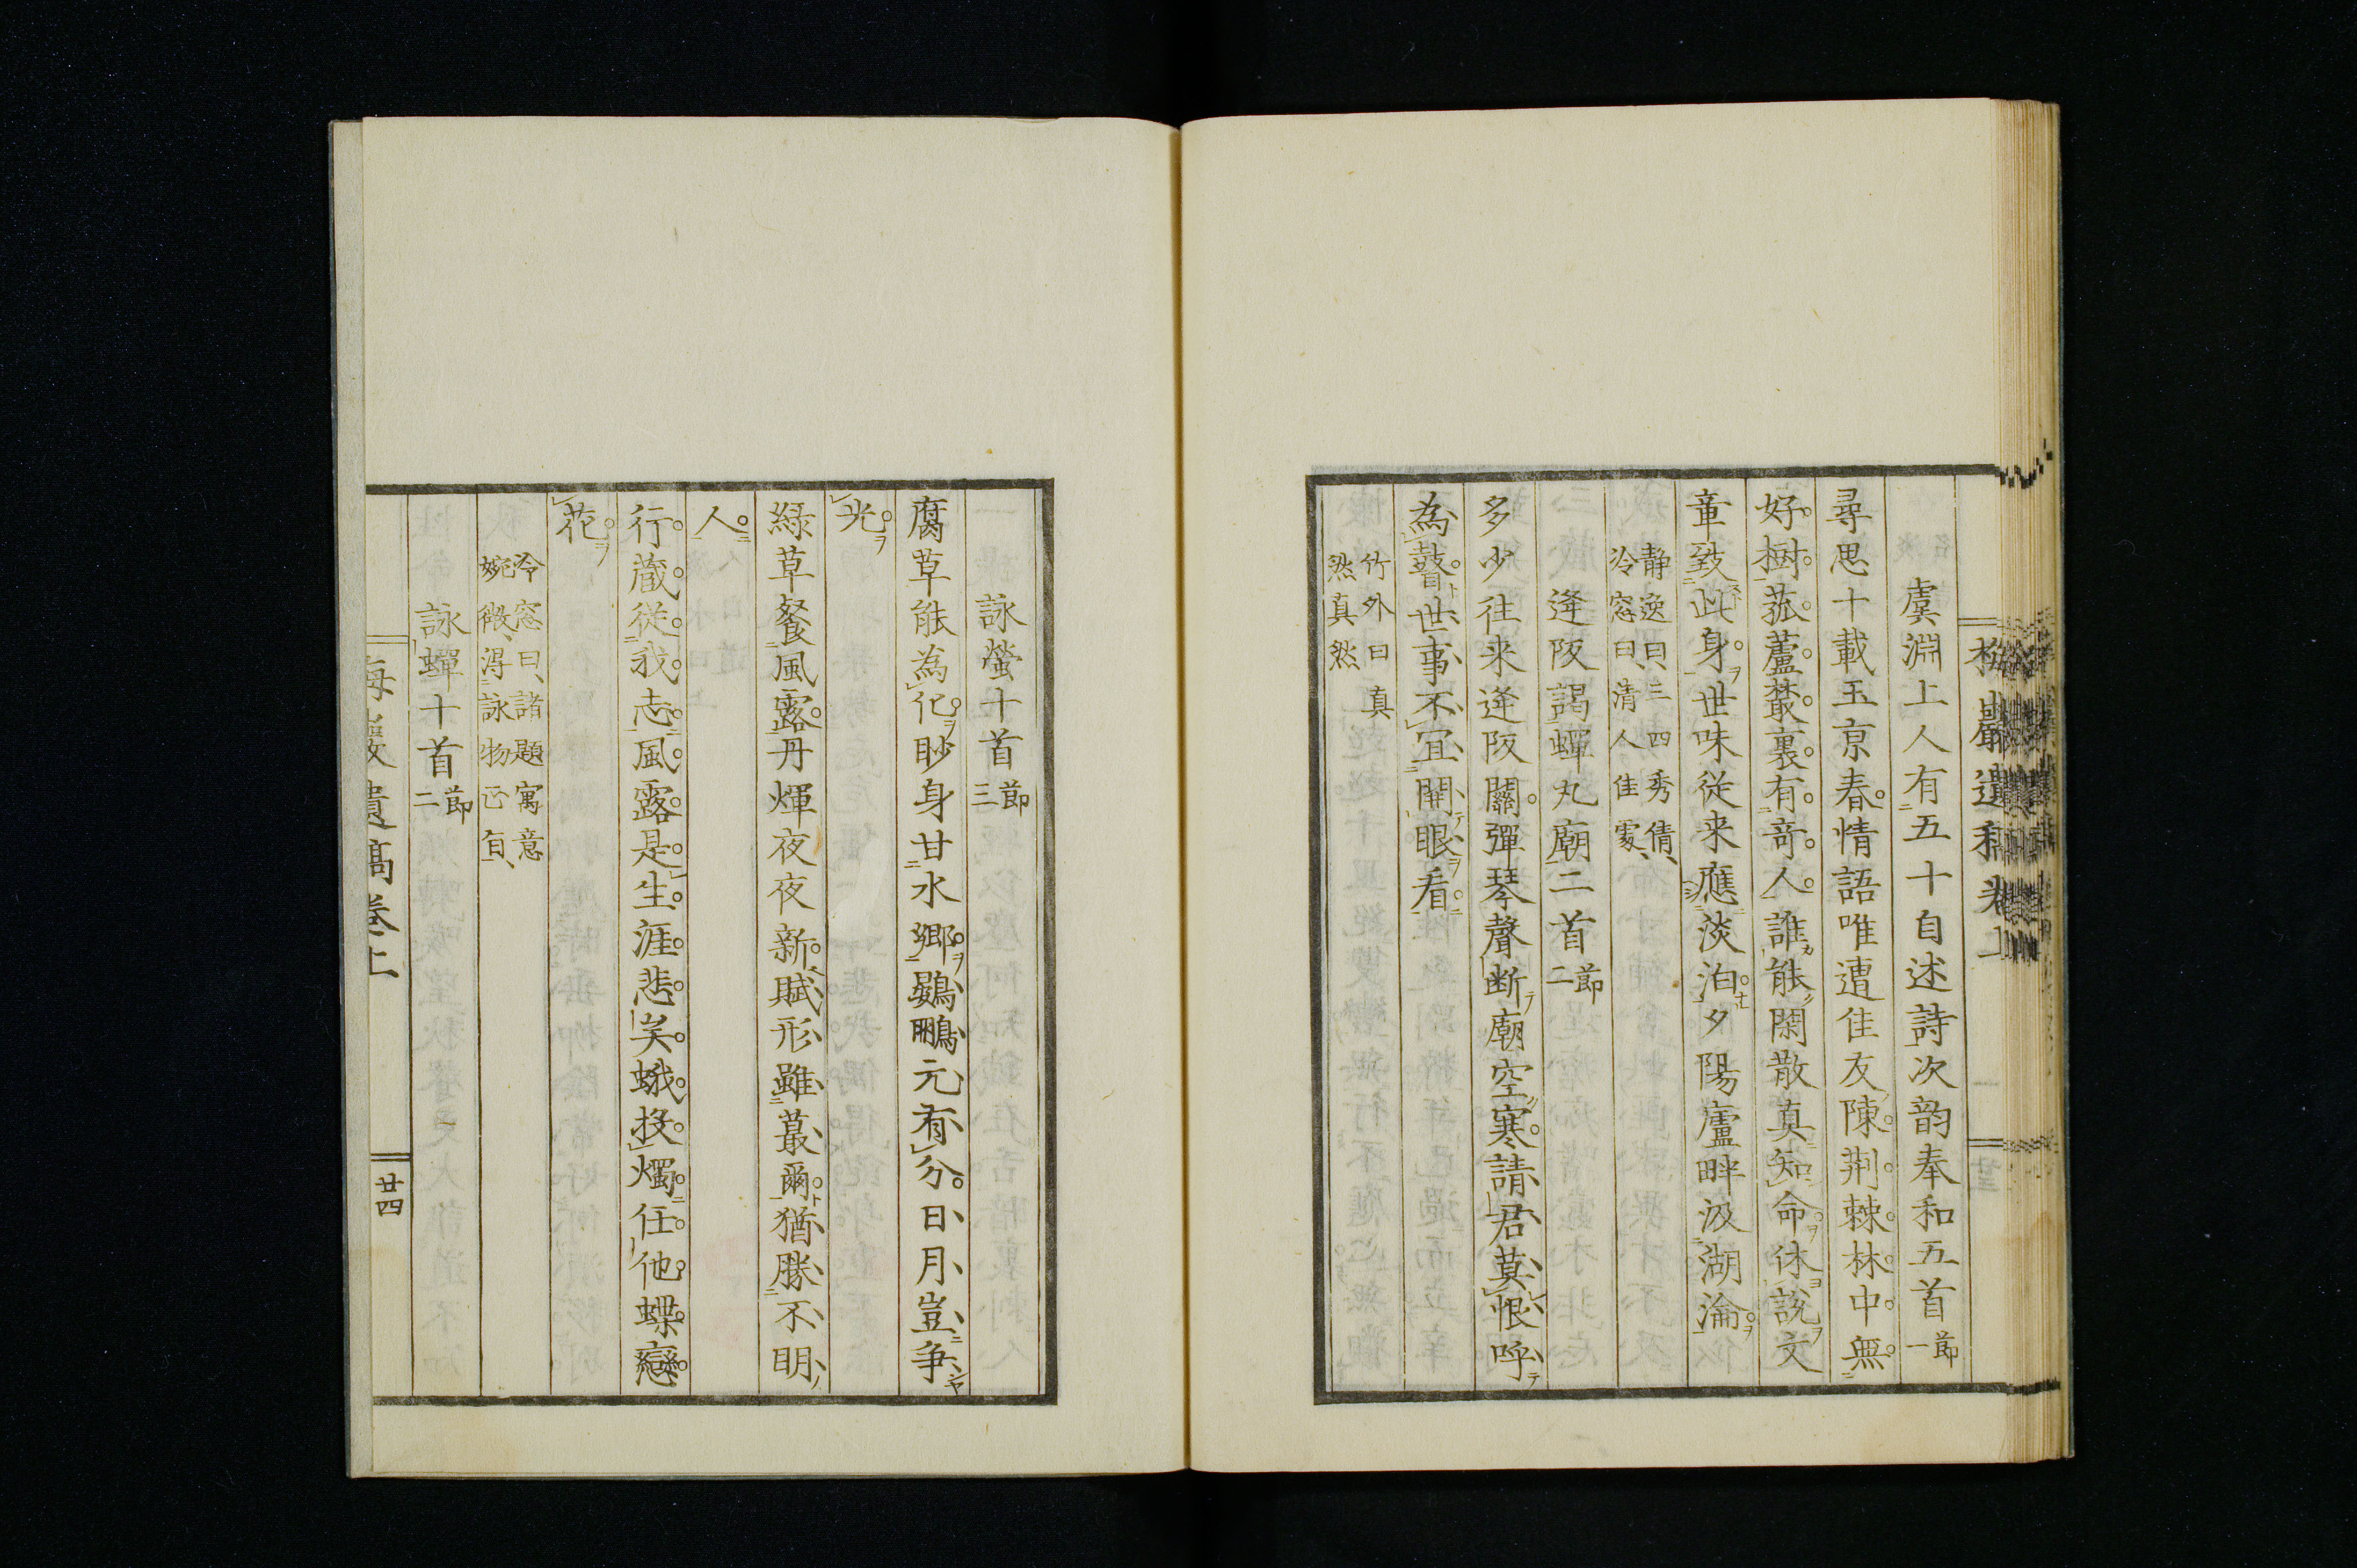 虞淵上人有五十自述詩次韵奉和五首節一
尋思十載玉京春情語唯遭佳友陳荆棘林中無
好樹菰蘆叢裏有竒人誰能閑散真知命休說文
章致此身世味従来應淡泊夕陽廬畔汲湖淪
静逸曰三四秀倩
冷窓曰清人佳處
逢阪謁蟬丸廟二首節二
多少往来逢阪關彈琴聲断廟空寒請君莫恨呼
為瞽世事不宜開眼看
竹外曰真
然真然
詠螢十首節三
腐草能為化眇身甘水郷鷃鵬元有分日月豈争
光
緑草餐風露丹煇夜夜新賦形雖蕞爾猶勝不明
人
行蔵従我志風露是生涯悲矣蛾投燭任他蝶戀
花
冷窓曰諸題寓意
婉微得詠物正旨
詠蟬十首節二
遺稿巻上
廿四